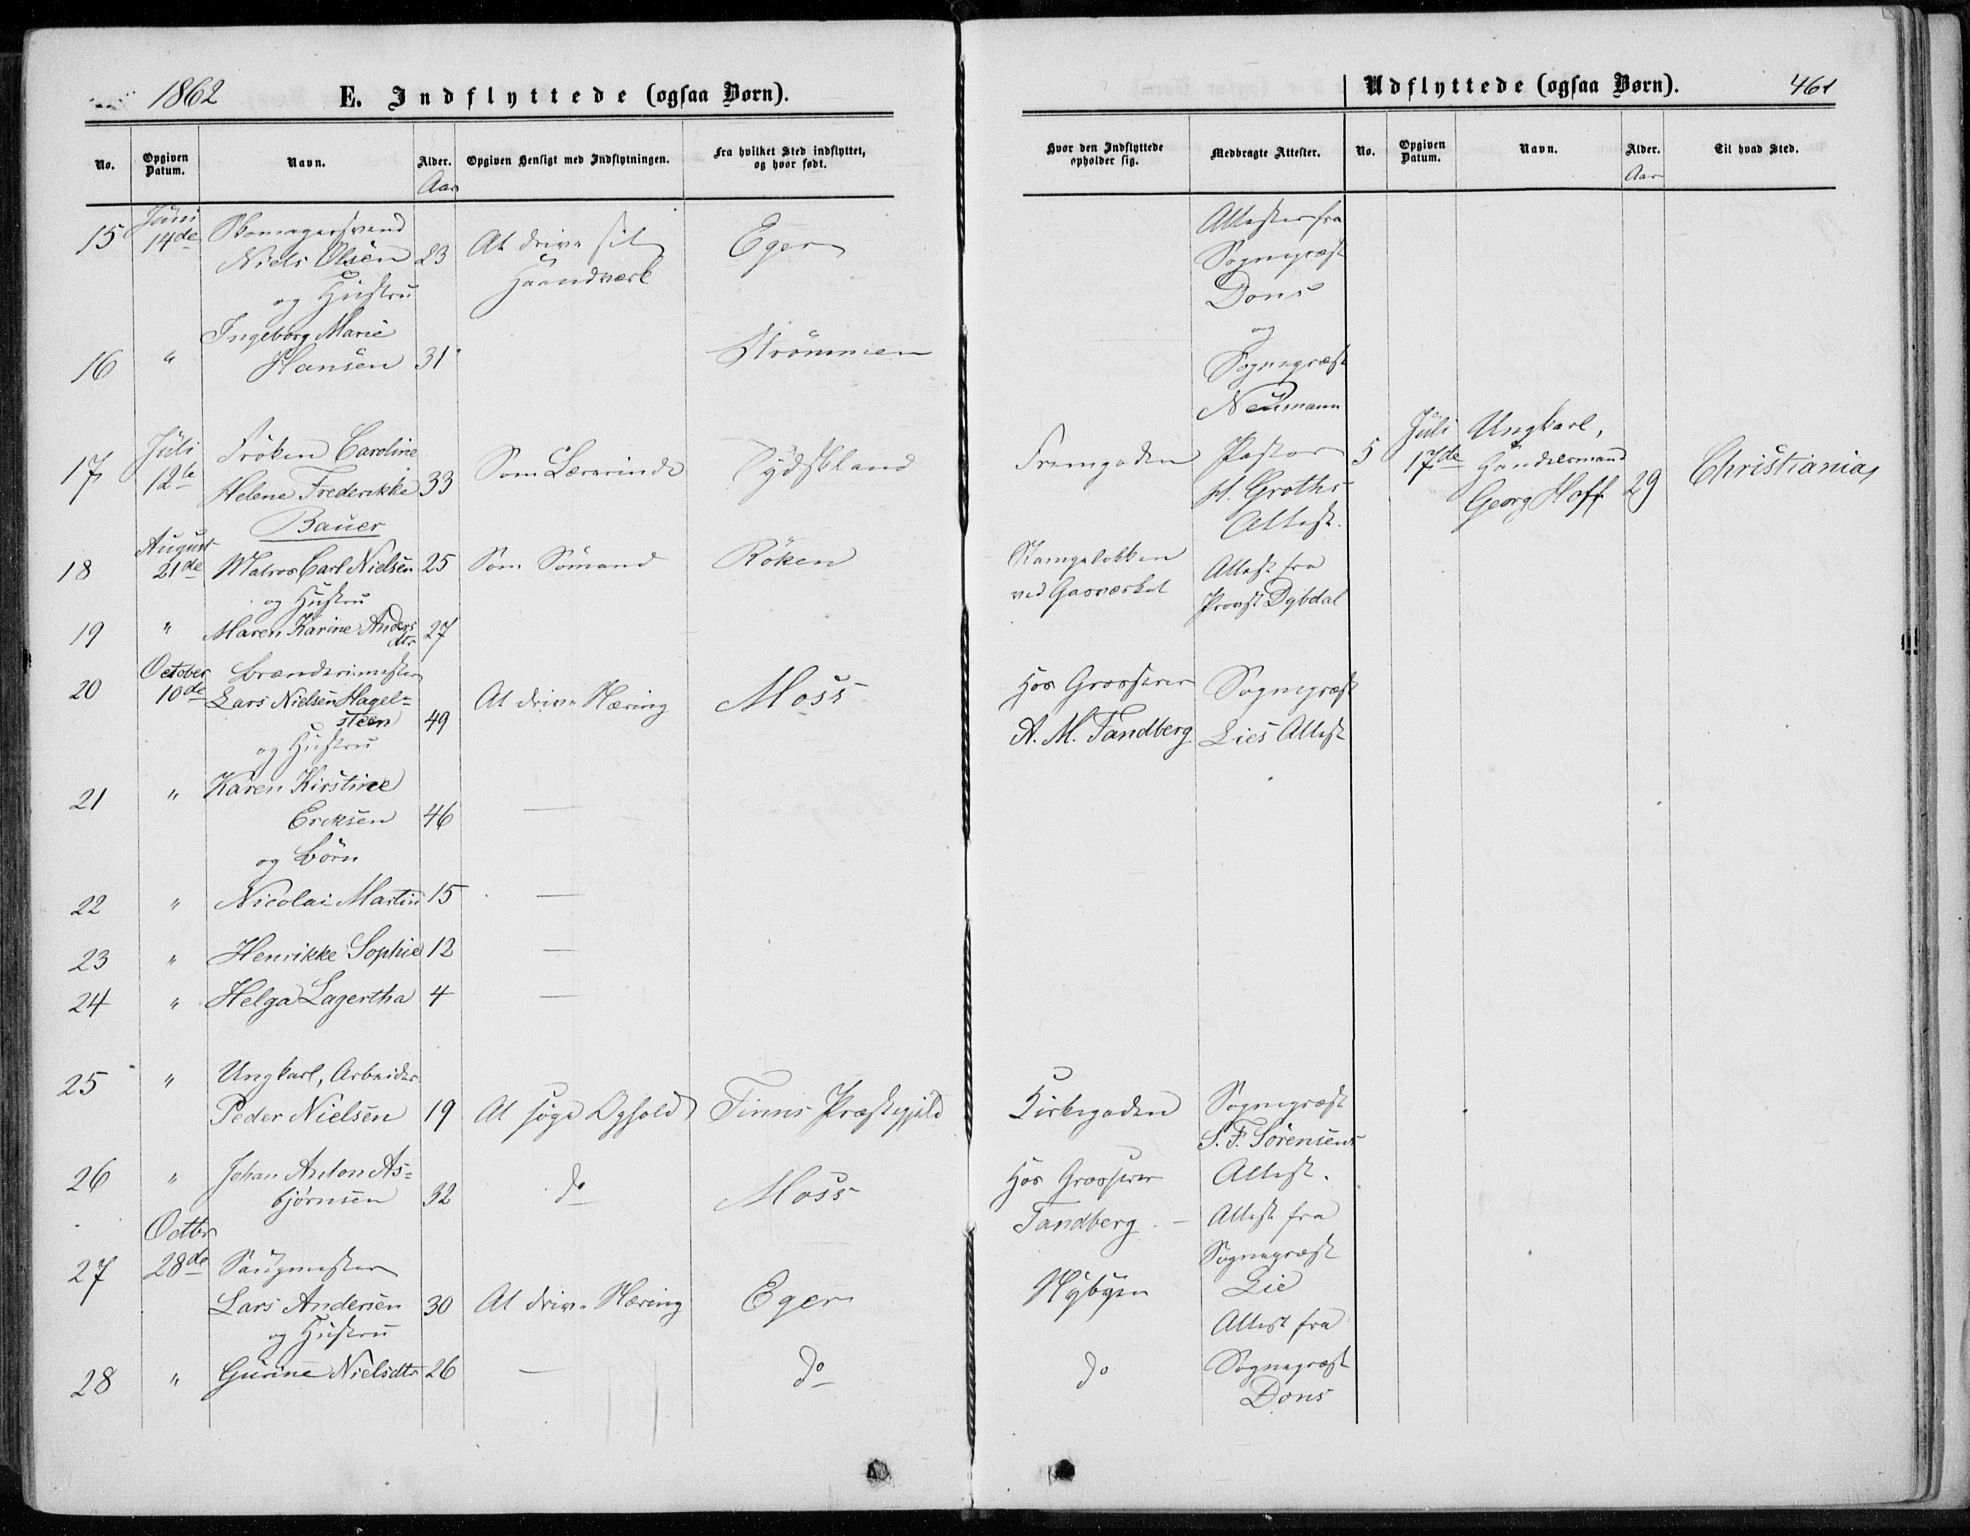 1862
E. Indflyttede (ogsaa Børn).
No.
Opgiven Datum.
Navn.
Alder.
Aar
Opgiven Hensigt med Indflytningen.
Fra hvilket Sted indflyttet, og hvor født.
15 Juni 14de Skomagersvend
Niels Olsen 23 At drive sit Haandværk Eger
og Hustru
Ingeborg Marie
16 " Hansen 31 Strömmen
17 Juli 12te Fröken Caroline
Helene Frederikke 33 Som Lærerinde Tydskland
Bauer
18 August 21de Matros Carl Nielsen 25 Som Sömand Röken
og Hustru
19 " Maren Karine Anders dtr 27
20 October 10de Brænderimester
Lars Nielsen Hagel=
steen 49 At drive Næring Moss
og Hustru
21 " Karen Kirstine
Eriksen 46 —
og Börn
22 " Nicolai Martin 15 —
23 " Henrikke Sophie 12 —
24 " Helga Lagertha 4 —
25 " Ungkarl, Arbeider
Peder Nielsen 19 At söge Ophold Finns Præstegjeld
26 " Johan Anton As=
bjørnsen 32 do Moss
27 Octbr 28de Saugmester
Lars Andersen 30 At drive Næring Eger
og Hustru
28 " Gurine Nielsdtr 26 — do
Udflyttede (ogsaa Børn).
461
Hvor den Indflyttede opholder sig.
Medbragte Attester.
No.
Opgiven Datum.
Navn.
Alder.
Aar
Til hvad Sted.
Attester fra
Sognepræst
Dons
og
Sognepræst
Neumann
Fremgaden Pastor
H. Groths
Attest.
5 Juli 17de Ungkarl,
Handelsmand
Georg Hoff 29 Christiania
ved Gasværket
Attest fra
Provst Dybdal
Hos Grosserer
A. M. Tandberg
Sognepræst
Lies Attest
Kirkegaden
Sognepræst
S. F. Sörensens
Attest.
Hos Grosserer
Tandberg. —
Attest fra
Sognepræst
Lie
Nybyen
Attest fra
do
Sognepræst
Dons